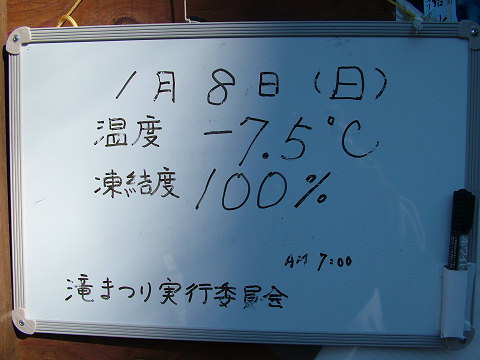 1月8日(日)
温度 -7.5℃
凍結度 100%
AM 7:00
滝まつり実行委員会